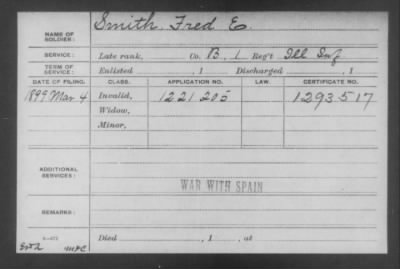 Smith, Fred E.
NAME OF SOLDIER:
SERVICE: Late rank, Co. B, 1 Reg't Ill Inf
TERM OF SERVICE: Enlisted , 1 Discharged , 1
DATE OF FILING. CLASS. APPLICATION NO. LAW. CERTIFICATE NO.
1899 Mar 4 Invalid, 1221205 1293517
Widow,
Minor,
ADDITIONAL SERVICES:
WAR WITH SPAIN
REMARKS:
Died , 1 , at